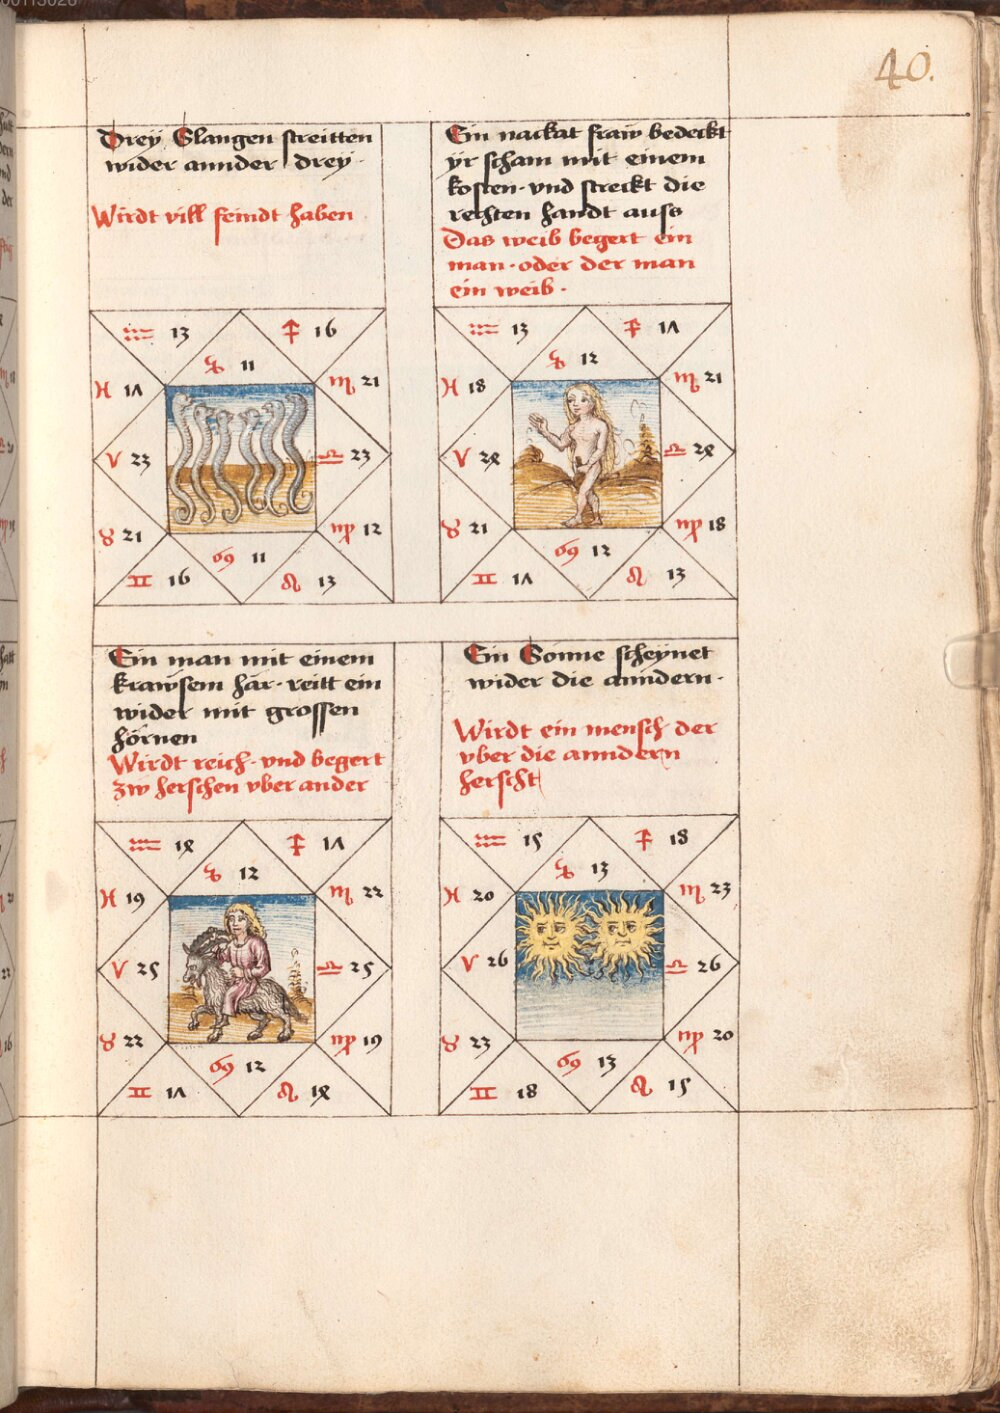 40.
Dreÿ Slangen streitten
wider annder dreÿ·
Wirdt vill feindt haben
♒ 13 ♐ 16
♑ 11
♓ 1Λ ♏ 21
♈ 23 ♎ 23
♉ 21 ♍ 12
♋ 11
♊ 16 ♌ 13
Ein nackat fraw bedeckt
ÿr scham mit einem
kosten· vnd streckt die
rechten handt auss
Das weib begert ein
man· oder der man
ein weib·
♒ 13 ♐ 1Λ
♑ 12
♓ 18 ♏ 21
♈ 2ꝝ ♎ 2ꝝ
♉ 21 ♍ 18
♋ 12
♊ 1Λ ♌ 13
Ein man mit einem
krawsem här· reitt ein
wider mit grossen
hörnen
Wirdt reich· vnd begert
zw herschen vber ander
♒ 1ꝝ ♐ 1Λ
♑ 12
♓ 19 ♏ 22
♈ 25 ♎ 25
♉ 22 ♍ 19
♋ 12
♊ 1Λ ♌ 1ꝝ
Ein Sonne scheÿnet
wider die anndern·
Wirdt ein mensch der
vber die anndern
herscht
♒ 15 ♐ 18
♑ 13
♓ 20 ♏ 23
♈ 26 ♎ 26
♉ 23 ♍ 20
♋ 13
♊ 18 ♌ 15